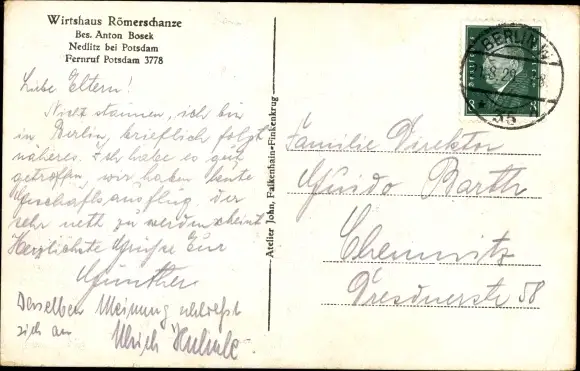 Wirtshaus Römerschanze
Bes. Anton Bosek
Nedlitz bei Potsdam
Fernruf Potsdam 3778
Liebe Eltern!
Nicht staunen, ich bin
in Berlin, brieflich folgt
näheres. Ich habe es gut
getroffen, wir haben heute
Geschäftsausflug der
sehr nett zu werden scheint
Herzlichste Grüße Euer
Günther
Derselben Meinung schließt
sich an Ulrich
Atelier John, Falkenhain-Finkenkrug
BERLIN W
8
8
35
Familie Direktor
Guido Barth
Chemnitz
Dresdnerstr 58